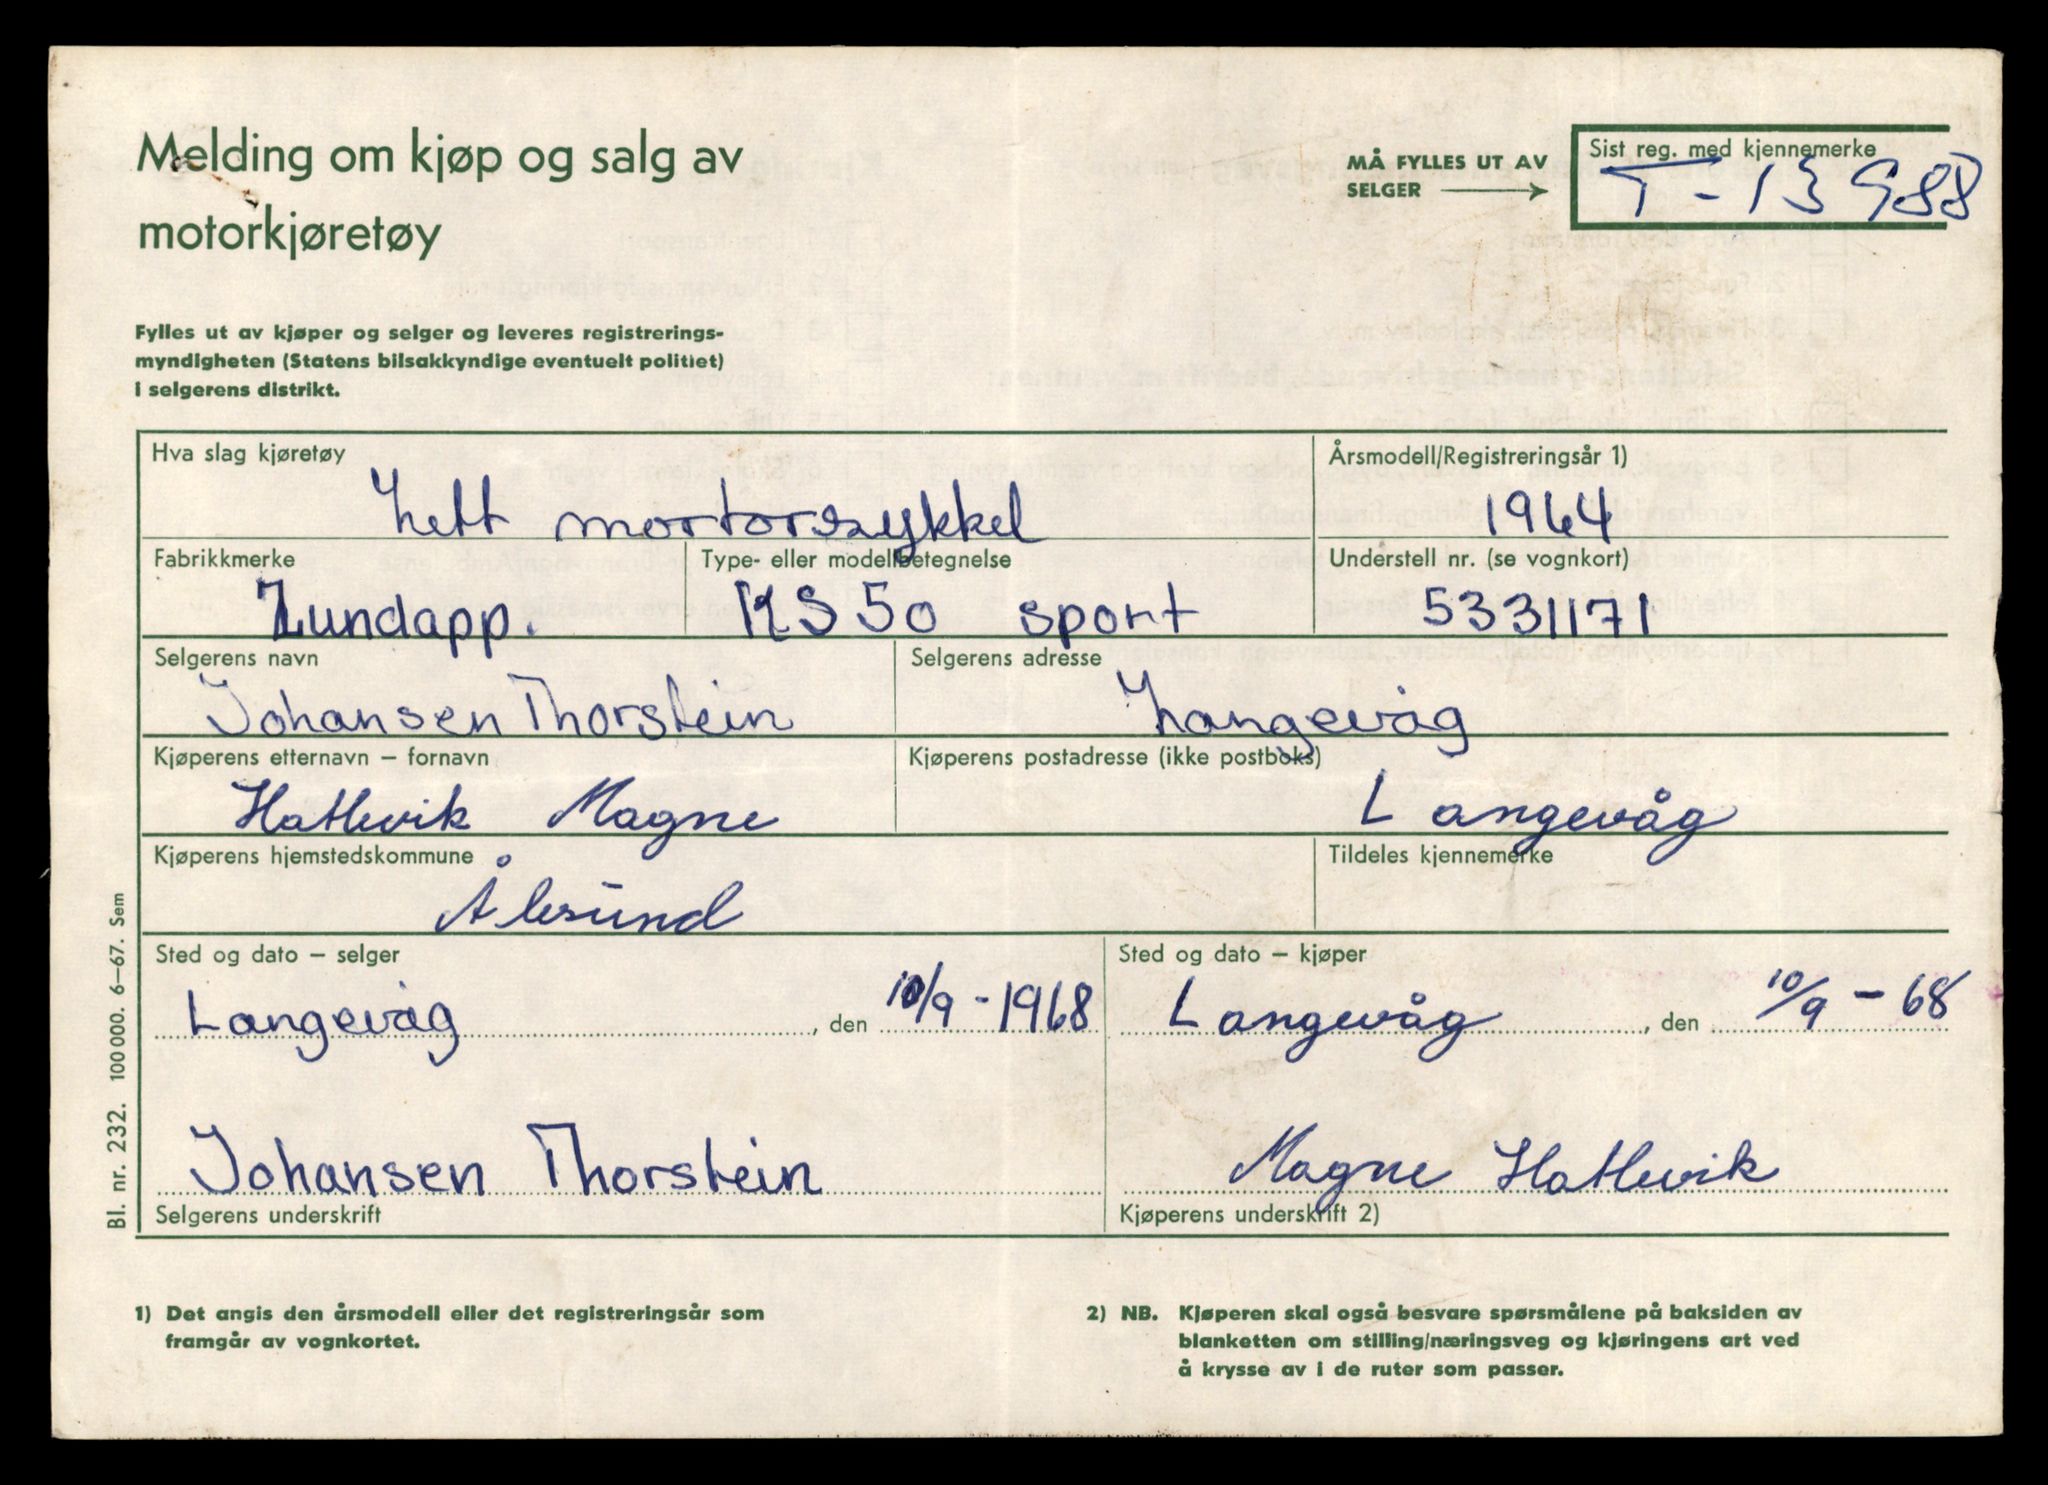 Melding om kjøp og salg av
motorkjøretøy
MÅ FYLLES UT AV
SELGER
Sist reg. med kjennemerke
T-13988
Fylles ut av kjøper og selger og leveres registrerings-
myndigheten (Statens bilsakkyndige eventuelt politiet)
i selgerens distrikt.
Hva slag kjøretøy
Årsmodell/Registreringsår 1)
Lett mortorsykkel
1964
Fabrikkmerke
Type- eller modellbetegnelse
Understell nr. (se vognkort)
Zundapp.
KS 50 sport
5331171
Selgerens navn
Selgerens adresse
Johansen Thorstein
Langevåg
Kjøperens etternavn – fornavn
Kjøperens postadresse (ikke postboks)
Hatlevik Magne
Langevåg
Kjøperens hjemstedskommune
Tildeles kjennemerke
Ålesund
Sted og dato – selger
Sted og dato – kjøper
Langevåg, den 10/9 - 1968
Langevåg, den 10/9 - 68
Johansen Thorstein
Magne Hatlevik
Selgerens underskrift
Kjøperens underskrift 2)
Bl. nr. 232. 100 000. 6–67. Sem
1) Det angis den årsmodell eller det registreringsår som
framgår av vognkortet.
2) NB. Kjøperen skal også besvare spørsmålene på baksiden av
blanketten om stilling/næringsveg og kjøringens art ved
å krysse av i de ruter som passer.